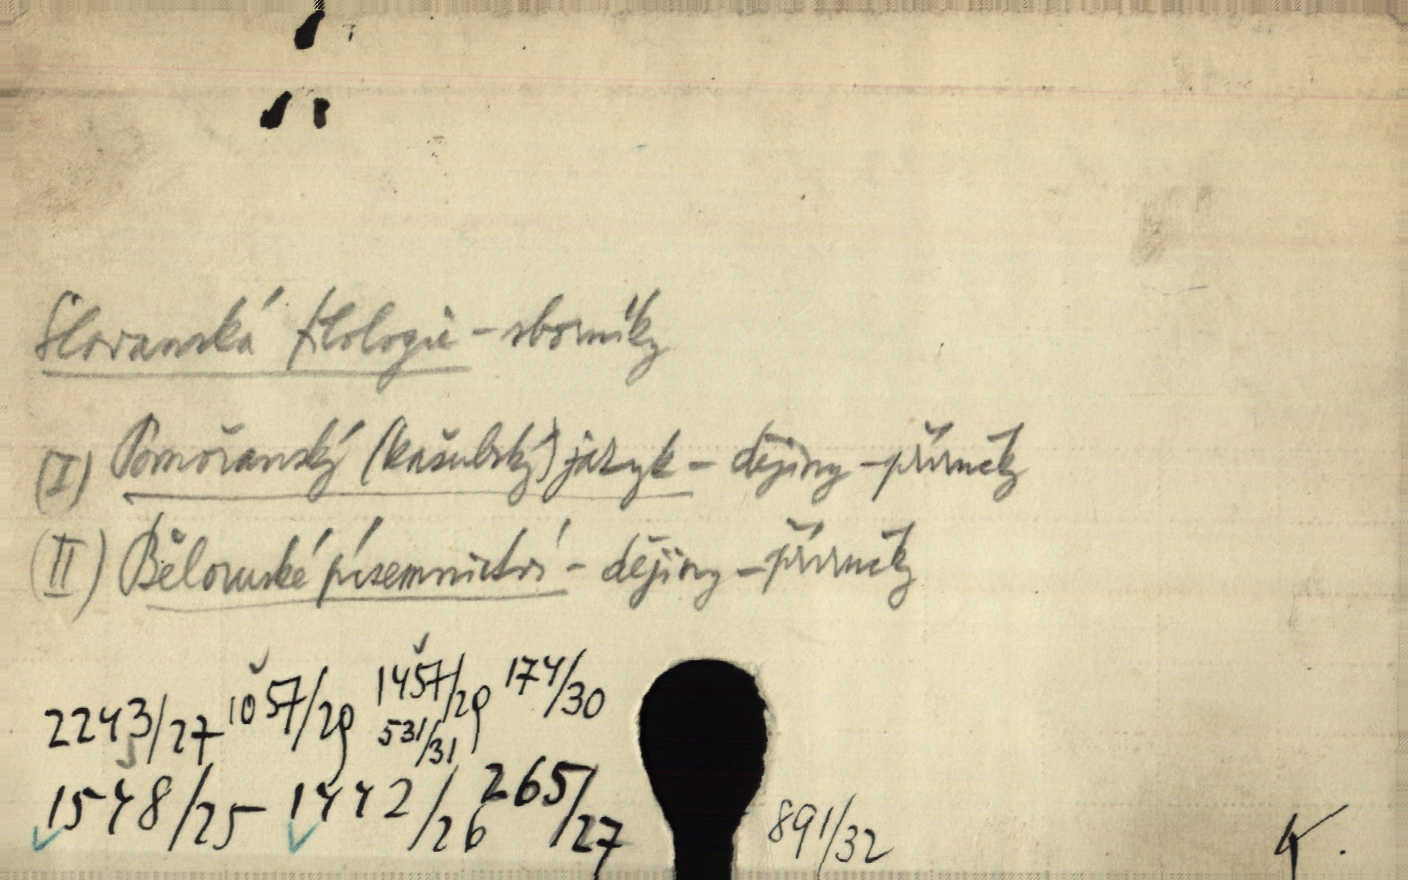 Slovanská filologie - sborníky
(I) Pomořanský (kašubský) jazyk - dějiny - příručky
(II) Běloruské písemnictví - dějiny - příručky
2243/27 1057/29 1457/29 174/30
531/31
1548/25 1442/26 265/27 891/32
K.